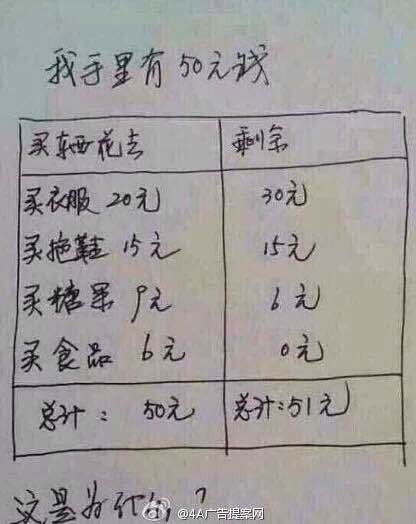 我手里有50元钱
买东西花去 剩余
买衣服 20元 30元
买拖鞋 15元 15元
买糖果 9元 6元
买食品 6元 0元
总计: 50元 总计:51元
这是为什么?
@4A广告提案网